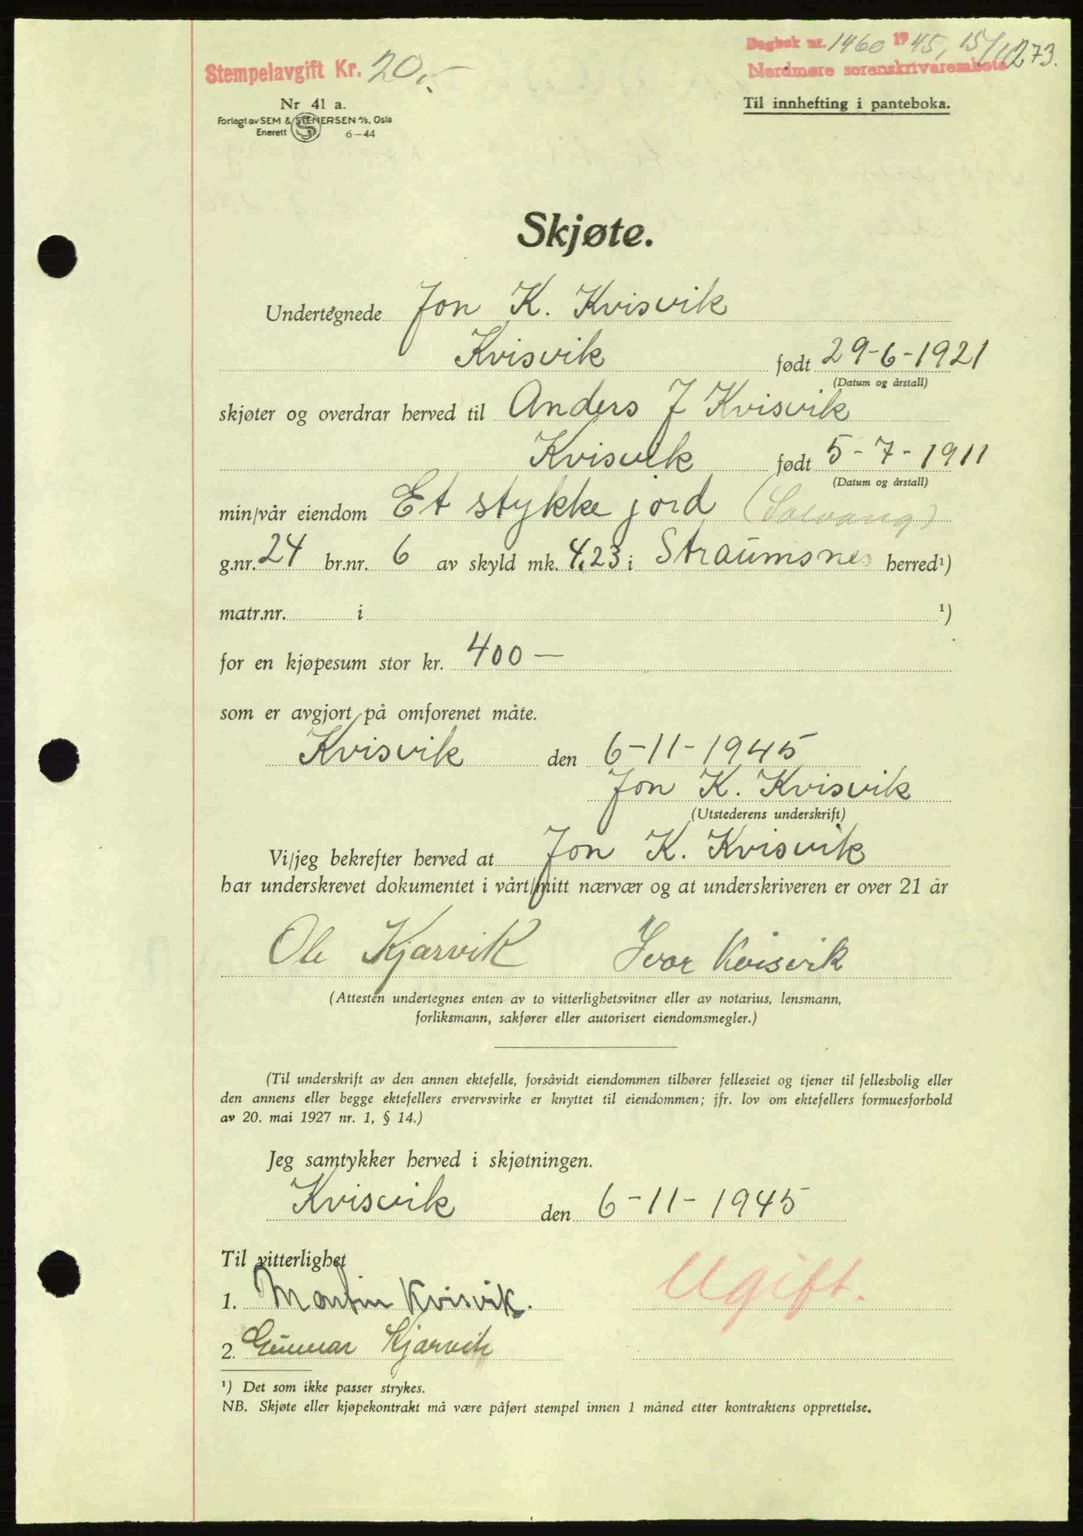 Stempelavgift Kr. 20,-
Dagbok nr. 1460 1945, 15/11 273.
Nordmøre sorenskriverembete
Nr 41 a.
Forlagt av SEM & STENERSEN A/S, Oslo
Enerett S 6-44
Til innhefting i panteboka.
Skjøte.
Undertegnede Jon K. Kvisvik
Kvisvik født 29-6-1921
(Datum og årstall)
skjøter og overdrar herved til Anders J Kvisvik
Kvisvik født 5-7-1911
(Datum og årstall)
min/vår eiendom Et stykke jord (Solvang)
g.nr. 24 br.nr. 6 av skyld mk. 4,23 i Straumsnes herred¹)
matr.nr. i ¹)
for en kjøpesum stor kr. 400 —
som er avgjort på omforenet måte.
Kvisvik den 6-11-1945
Jon K. Kvisvik
(Utstederens underskrift)
Vi/jeg bekrefter herved at Jon K. Kvisvik
har underskrevet dokumentet i vårt/mitt nærvær og at underskriveren er over 21 år
Ole Kjørvik Ivar Kvisvik
(Attesten undertegnes enten av to vitterlighetsvitner eller av notarius, lensmann,
forliksmann, sakfører eller autorisert eiendomsmegler.)
(Til underskrift av den annen ektefelle, forsåvidt eiendommen tilhører felleseiet og tjener til fellesbolig eller
den annens eller begge ektefellers ervervsvirke er knyttet til eiendommen; jfr. lov om ektefellers formuesforhold
av 20. mai 1927 nr. 1, § 14.)
Jeg samtykker herved i skjøtningen.
Kvisvik den 6-11-1945
Til vitterlighet
1. Martin Kvisvik. Ugift.
2. Gunnar Kjørvik
¹) Det som ikke passer strykes.
NB. Skjøte eller kjøpekontrakt må være påført stempel innen 1 måned etter kontraktens opprettelse.